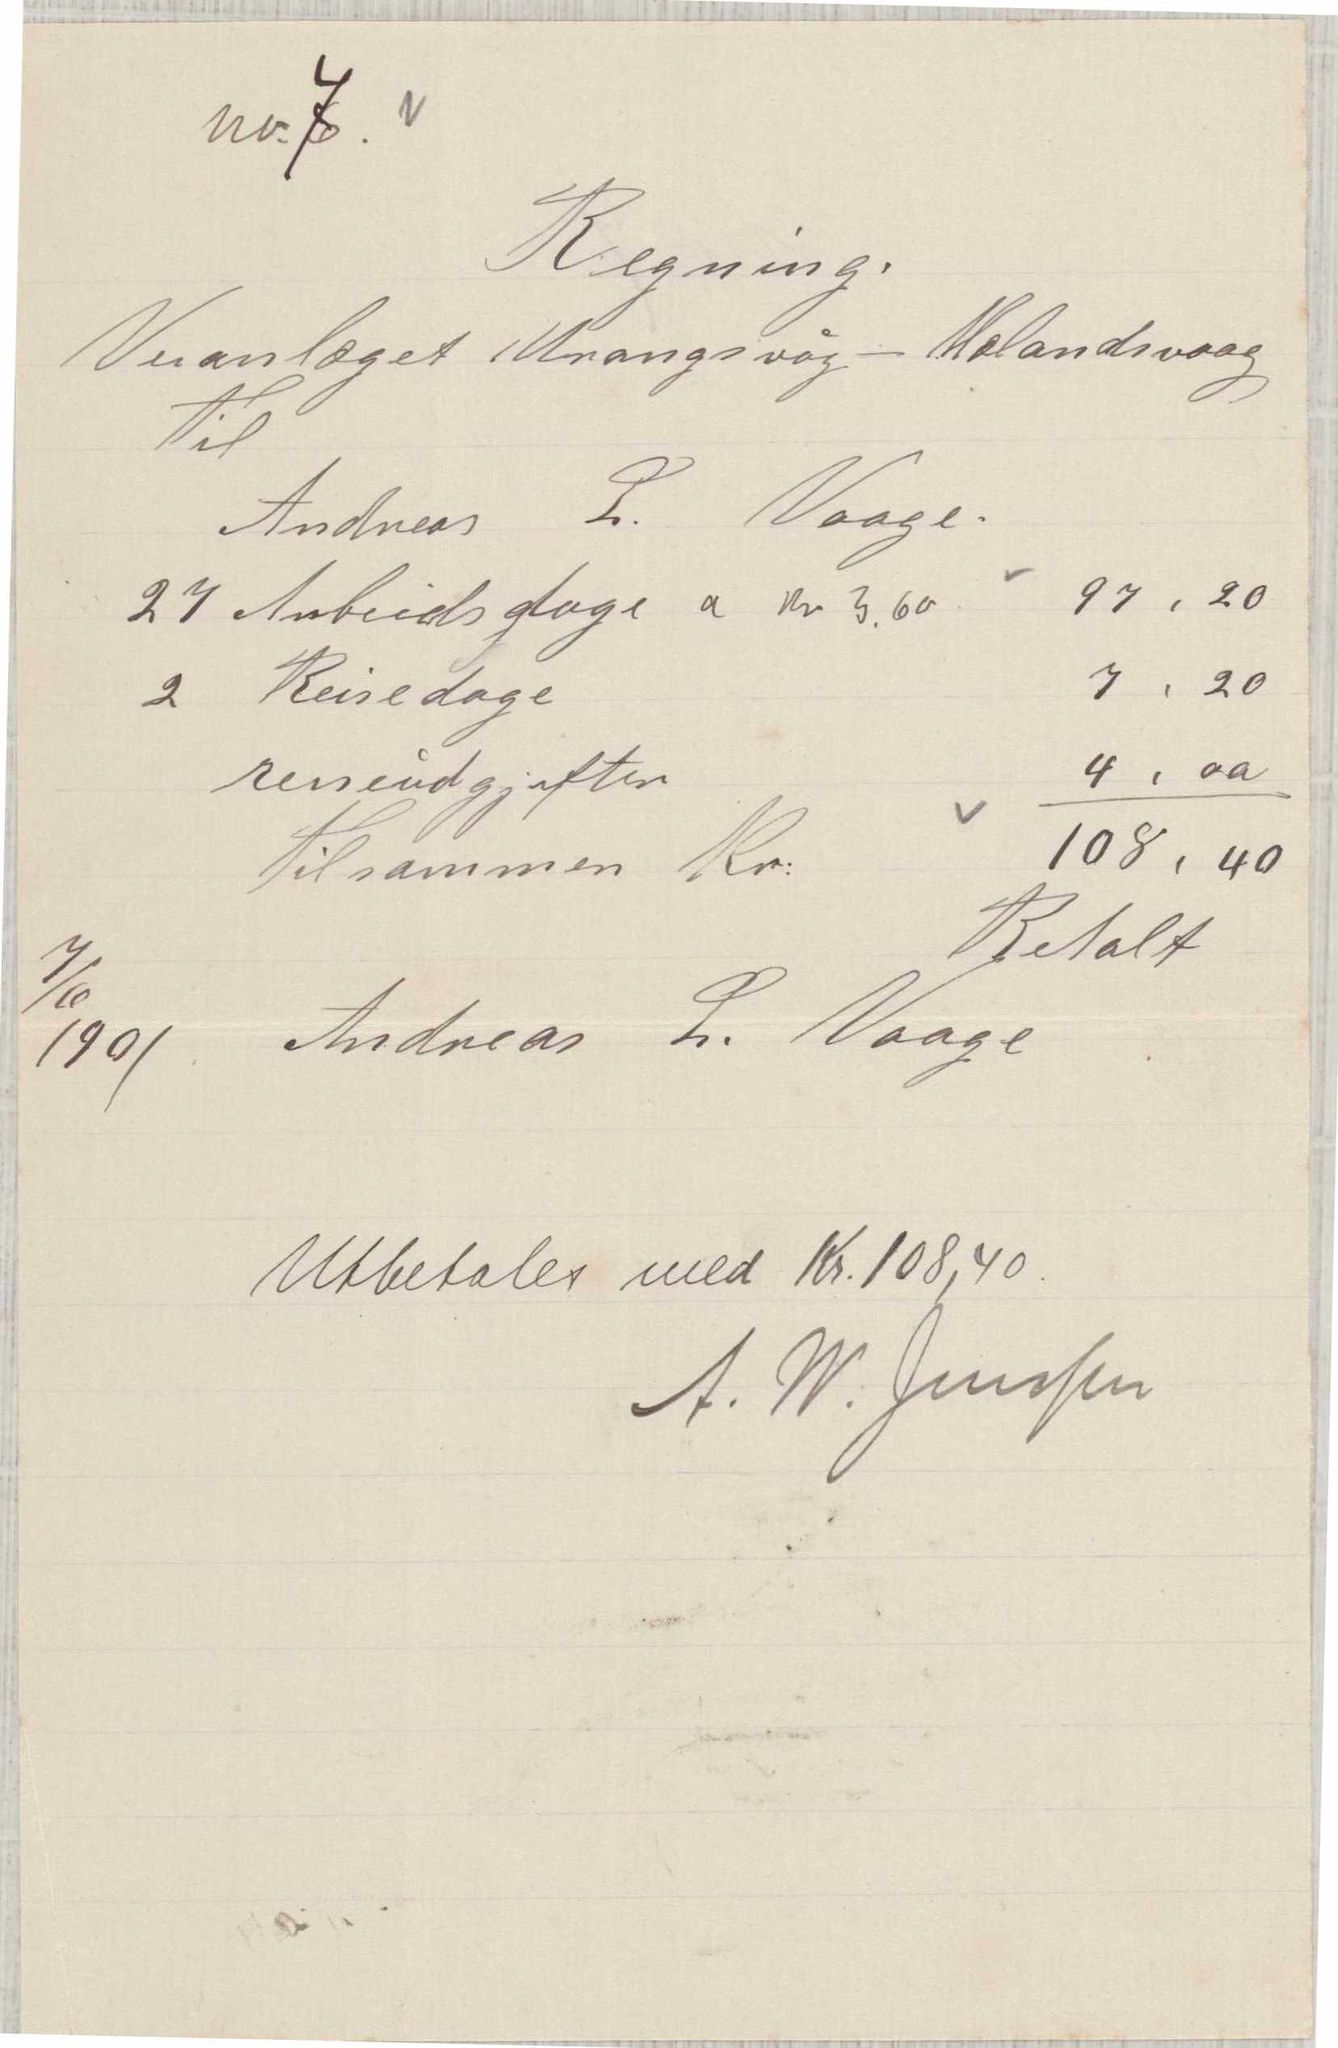 no. 7.
Regning.
Veianlæget Urangsvåg – Mælandsvaag
Til
Andreas L. Vaage.
27 Arbeidsdage a Kr 3,60 97,20
2 Reisedage 7,20
reiseudgifter 4,00
Tilsammen Kr: 108,40
Betalt
7/6
1901 Andreas L. Vaage
Utbetales med Kr. 108,40.
A. W. Jenssen